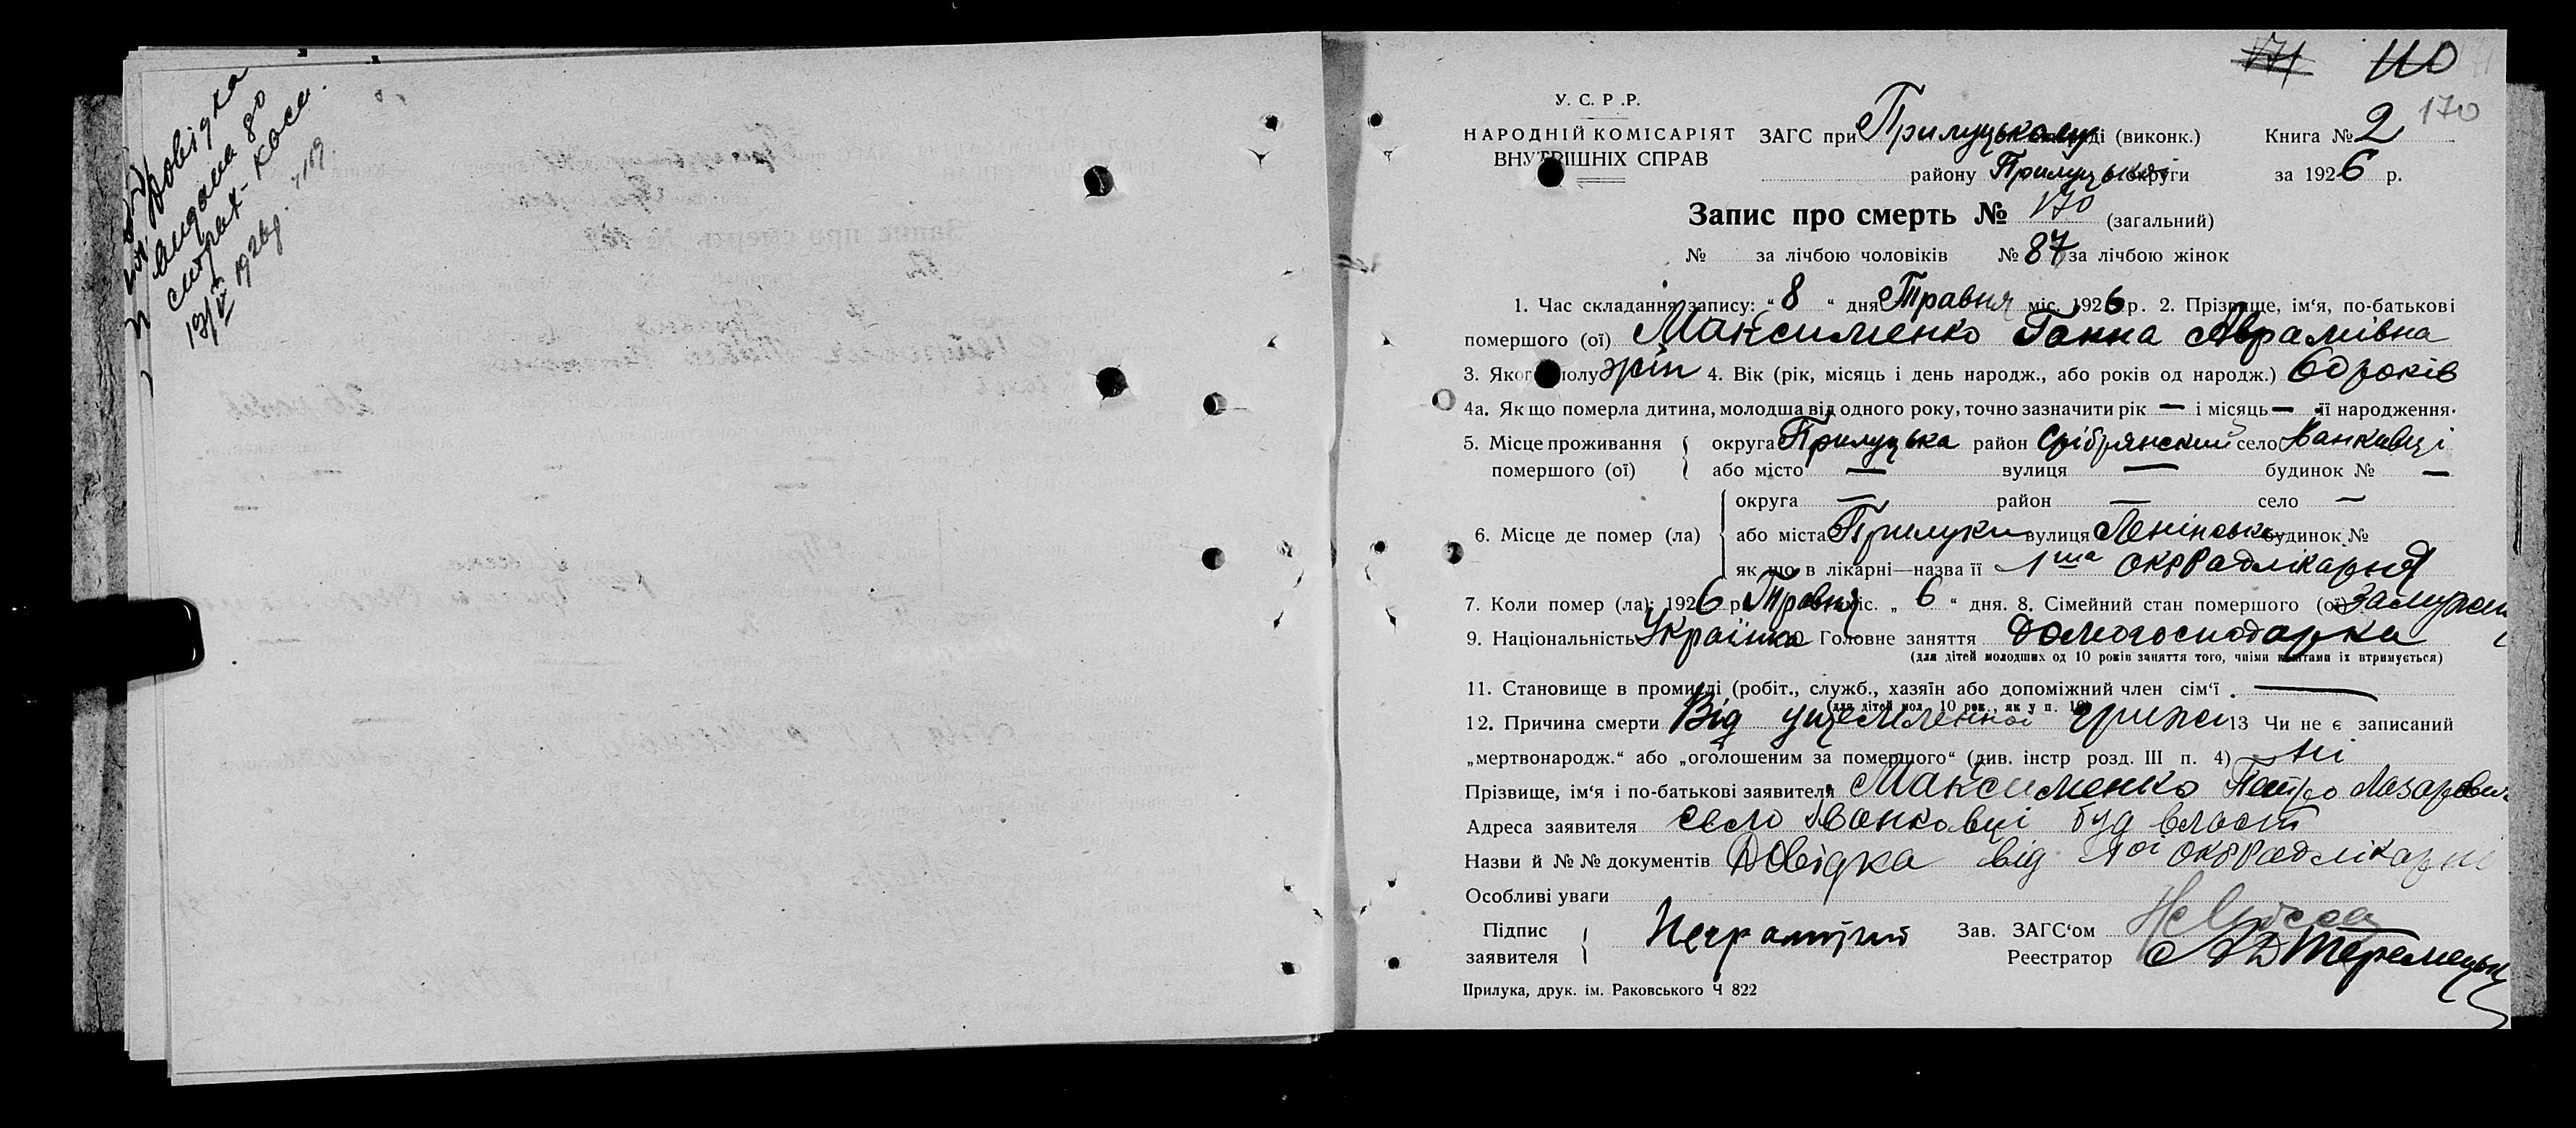 Довідка
видана 80
страх-каси.
13/V 1926р.
171 110
170
У. С. Р. Р.
НАРОДНІЙ КОМІСАРІЯТ ЗАГС при Прилуцькому (виконк.) Книга № 2
ВНУТРІШНІХ СПРАВ
району Прилуцької округи за 1926 р.
Запис про смерть № 170 (загальний)
№ за лічбою чоловіків № 87 за лічбою жінок
1. Час складання запису: “ 8 “ дня Травня міс. 1926 р. 2. Прізвище, ім‘я, по-батькові
помершого (ої) Максименко Ганна Аврамівна
3. Якого полу жін 4. Вік (рік, місяць і день народж., або років од народж.) 60 років
4а. Як що померла дитина, молодша від одного року, точно зазначити рік — і місяць — її народження.
5. Місце проживання округа Прилуцька район Срібрянский село Іванківці
помершого (ої) або місто — вулиця — будинок № —
округа — район — село —
6. Місце де помер (ла) або міста Прилуки вулиця Ленінська будинок №
як що в лікарні—назва її 1ша окррадлікарня
7. Коли помер (ла): 1926 р. Травня міс. „ 6 “ дня. 8. Сімейний стан помершого (ої) Замужем
9. Національність Українка 10. Головне заняття Домогосподарка
(для дітей молодших од 10 років заняття того, чиїми коштами їх втримується)
11. Становище в промислі (робіт., служб., хазяїн або допоміжний член сім‘ї . —
(для дітей мол. 10 рок., як у п. 10)
12. Причина смерти Від ущемленної грижи 13 Чи не є записаний
„мертвонародж.“ або „оголошеним за помершого“ (див. інстр розд. III п. 4) ні
Прізвище, ім‘я і по-батькові заявителя Максименко Петро Лазарович
Адреса заявителя село Іванковці буд власт
Назви й №№ документів Довідка від 1ої окррадлікарні
Особливі уваги
Підпис Неграмотний Зав. ЗАГС‘ом
заявителя Реестратор
Прилука, друк. ім. Раковського Ч 822